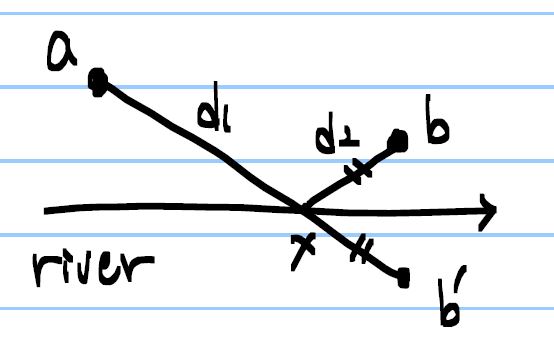 a
d1
d2
b
x
river
b'